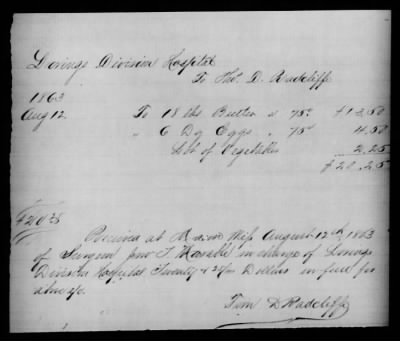 Lorings Division Hospital
To Tho. D. Radcliffe
1863
Aug 12. To 18 lbs Butter " 75c $13,50
" 6 Dz Eggs " 75c 4,50
Lot of Vegetables 2,25
$20.25
$20 25
Received at Mis August 12th 1863
of Surgeon Jno T in charge of Lorings
Division Hospital Twenty & 25/100 Dollars in full for
above a/c.
D Radcliffe